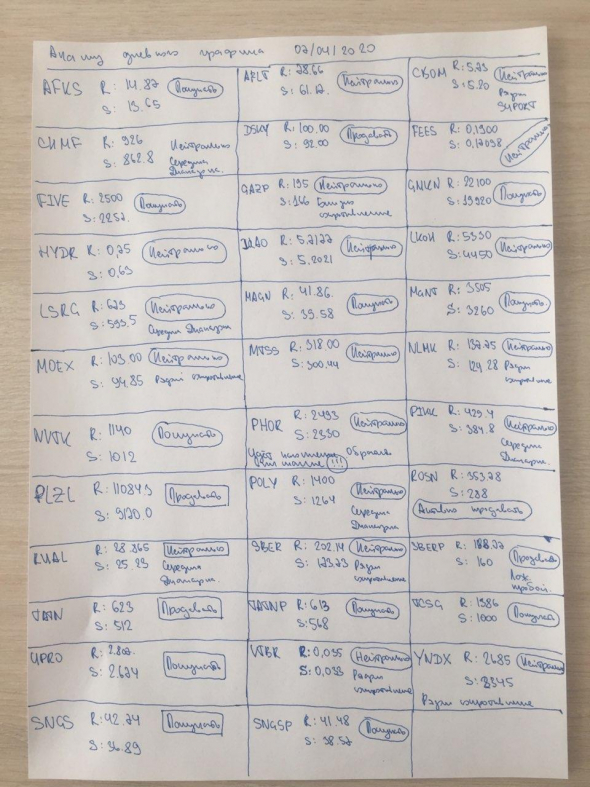 Анализ дневного графика 07/04/2020
AFKS R: 14.87 Покупать
S: 13.65
AFLT R: 78.66 Нейтрально
S: 61.12.
CBOM R: 5.73 Нейтрально
S: 5.20 Рядом
SUPPORT
CHMF R: 926 Нейтрально
S: 862.8 Середина
Диапазон.
DSKY R: 100.00 Продавать
S: 92.00
FEES R: 0,1900
S: 0,17098 Нейтрально
FIVE R: 2500 Покупать
S: 2252.
GAZP R: 195 Нейтрально
S: 166 Близко
сопротивление
GMKN R: 22100 Покупать
S: 19920
HYDR R: 0,75 Нейтрально
S: 0,63
IRAO R: 5,2122 Нейтрально
S: 5.2021
LKOH R: 5330 Нейтрально
S: 4450
LSRG R: 623 Нейтрально
S: 593,5 Середина Диапазон
MAGN R: 41.86. Покупать
S: 39.58
MGNT R: 3505 Покупать.
S: 3260
MOEX R: 103.00 Нейтрально
S: 94.85 Рядом сопротивление
MTSS R: 318.00 Нейтрально
S: 300.44
NLMK R: 132.25 Нейтрально
S: 124.28 Рядом
сопротивление
NVTK R: 1140 Покупать
S: 1012
PHOR R: 2493 Нейтрально
S: 2330
!!!
PIKK R: 429.4 Нейтрально
S: 384.8 Середина
Диапазон.
PLZL R: 11084,5 Продавать
S: 9120.0
POLY R: 1400 Нейтрально
S: 1264 Середина
Диапазон
ROSN R: 353.28
S: 288
Активно продавать
RUAL R: 28.865 Нейтрально
S: 25.23 Середина
Диапазон.
SBER R: 202.14 Нейтрально
S: 173.73 Рядом
сопротивление
SBERP R: 188.22 Продавать
S: 160 Лож.
пробой.
TATN R: 623 Продавать
S: 512
TATNP R: 613 Покупать
S: 568
TCSG R: 1386 Покупать
S: 1000
UPRO R: 2.802. Покупать
S: 2.674
VTBR R: 0,035 Нейтрально
S: 0,033 Рядом
сопротивление
YNDX R: 2685 Нейтрально
S: 2345
Рядом сопротивление
SNGS R: 42.74 Покупать
S: 36.89
SNGSP R: 41.48 Покупать
S: 38.52